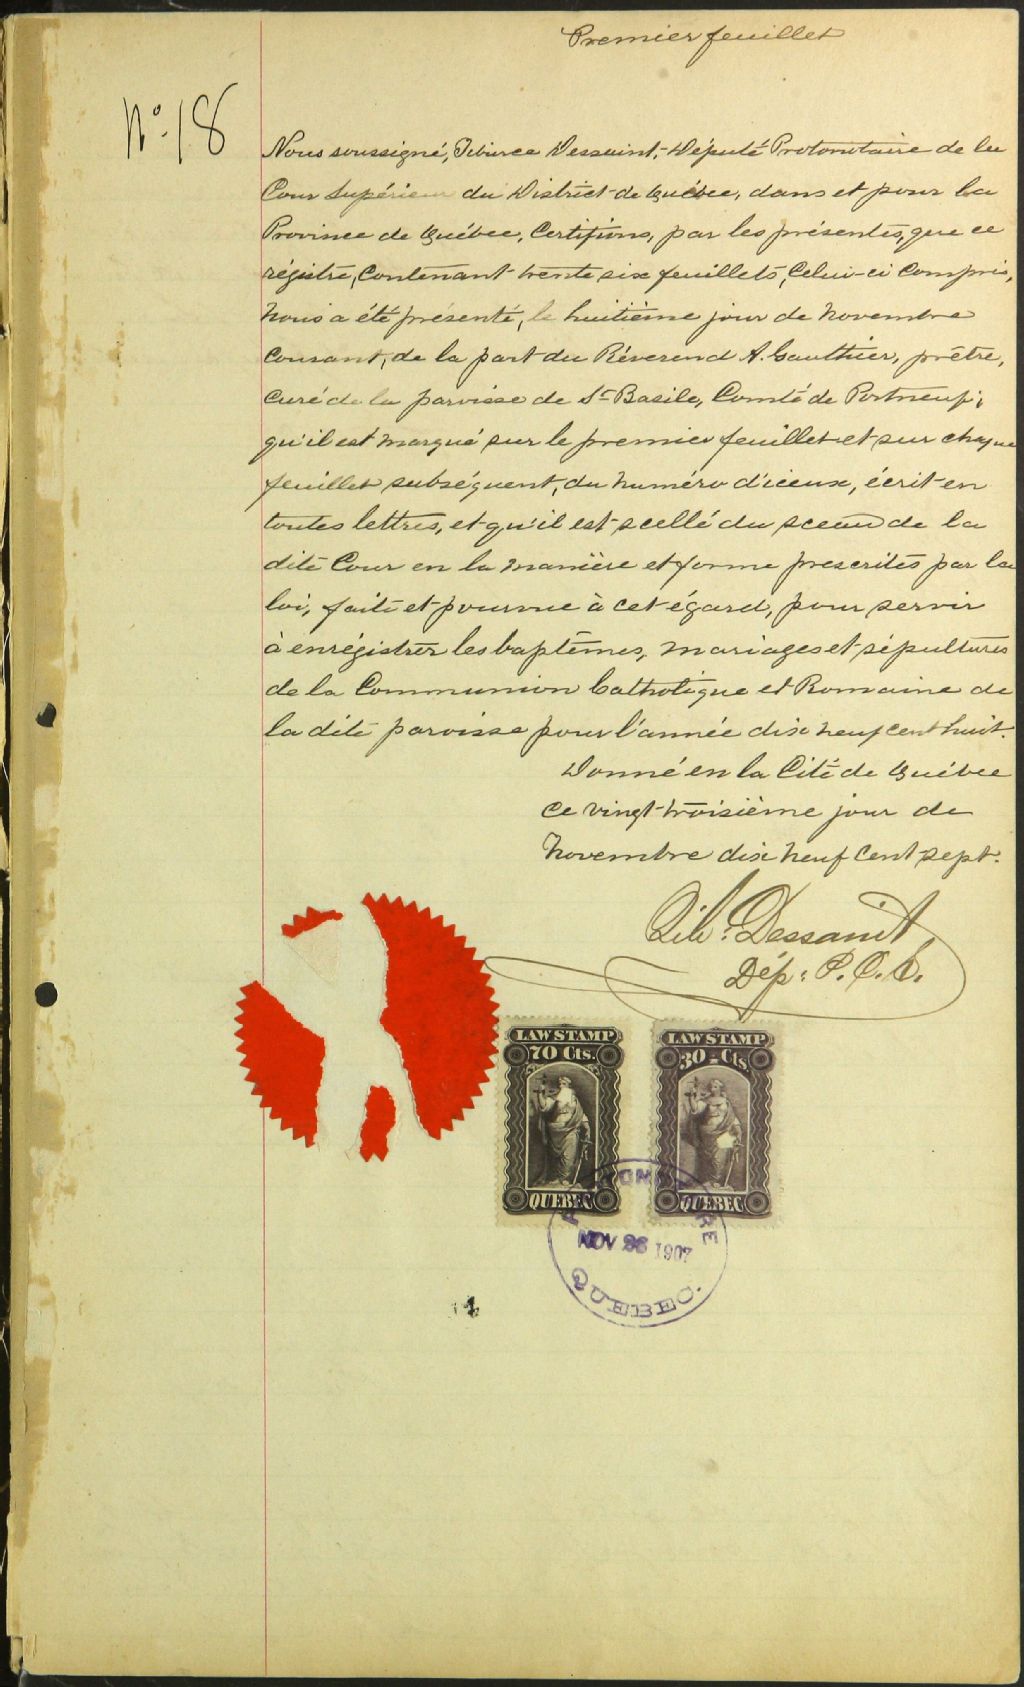 Premier feuillet
No. 18
Nous soussigné, Tiburce Dessaint, Député Protonotaire de la
Cour Supérieure du District de Québec, dans et pour la
Province de Québec, Certifions, par les présentes, que ce
régistre, Contenant trente six feuillets, Celui-ci Compris,
nous a été présenté, le huitième jour de Novembre
Courant, de la part du Révérend A. Gauthier, prêtre,
Curé de la paroisse de St Basile, Comté de Portneuf;
qu'il est marqué sur le premier feuillet et sur chaque
feuillet subséquent, du numéro d'iceux, écrit en
toutes lettres, et qu'il est scellé du sceau de la
dite Cour en la manière et forme prescrites par la
loi, faite et pourvue à cet égard, pour servir
à enrégistrer les baptêmes, mariages et sépultures
de la Communion Catholique et Romaine de
la dite paroisse pour l'année dix neuf cent huit.
Donné en la Cité de Québec
ce vingt-troisième jour de
Novembre dix neuf cent sept.
Tib. Dessaint
Dép: P. C. S.
LAW STAMP
70 Cts.
QUEBEC
LAW STAMP
30-Cts
QUEBEC
NOV 1907
QUEBEC.